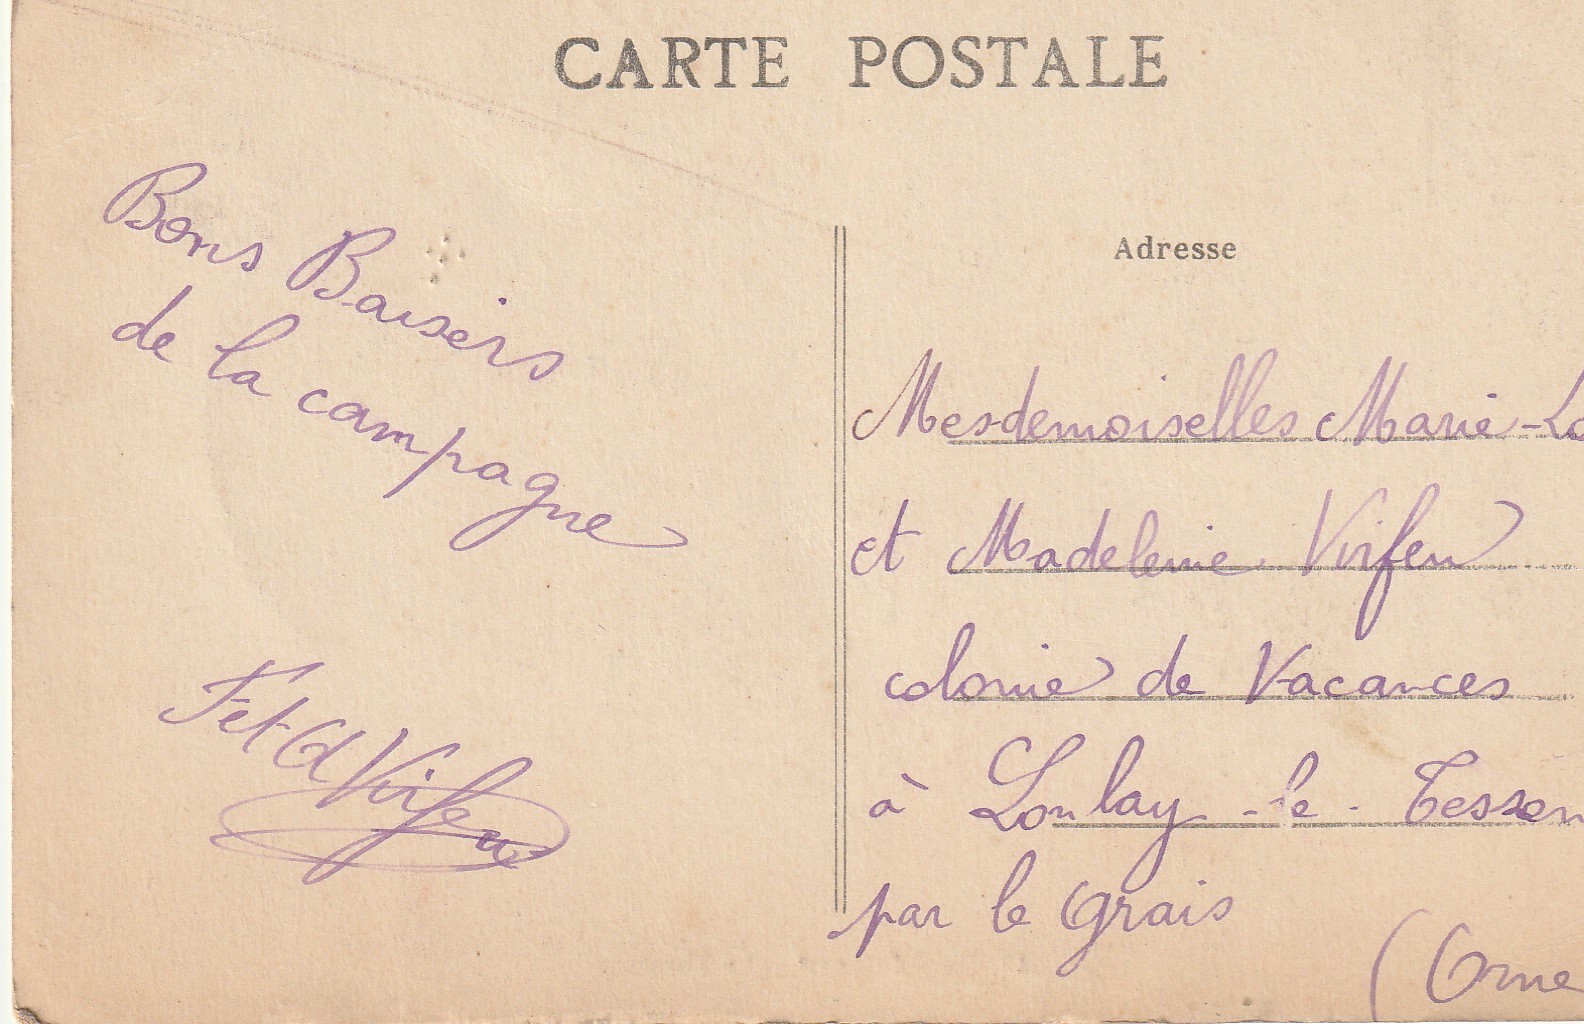 CARTE POSTALE
Bons Baisers
de la campagne
F et G Virfeu
Adresse
Mesdemoiselles Marie-Lo
et Madeleine Virfeu
colonie de Vacances
à Lonlay-le-Tesson
par le Grais
(Orne